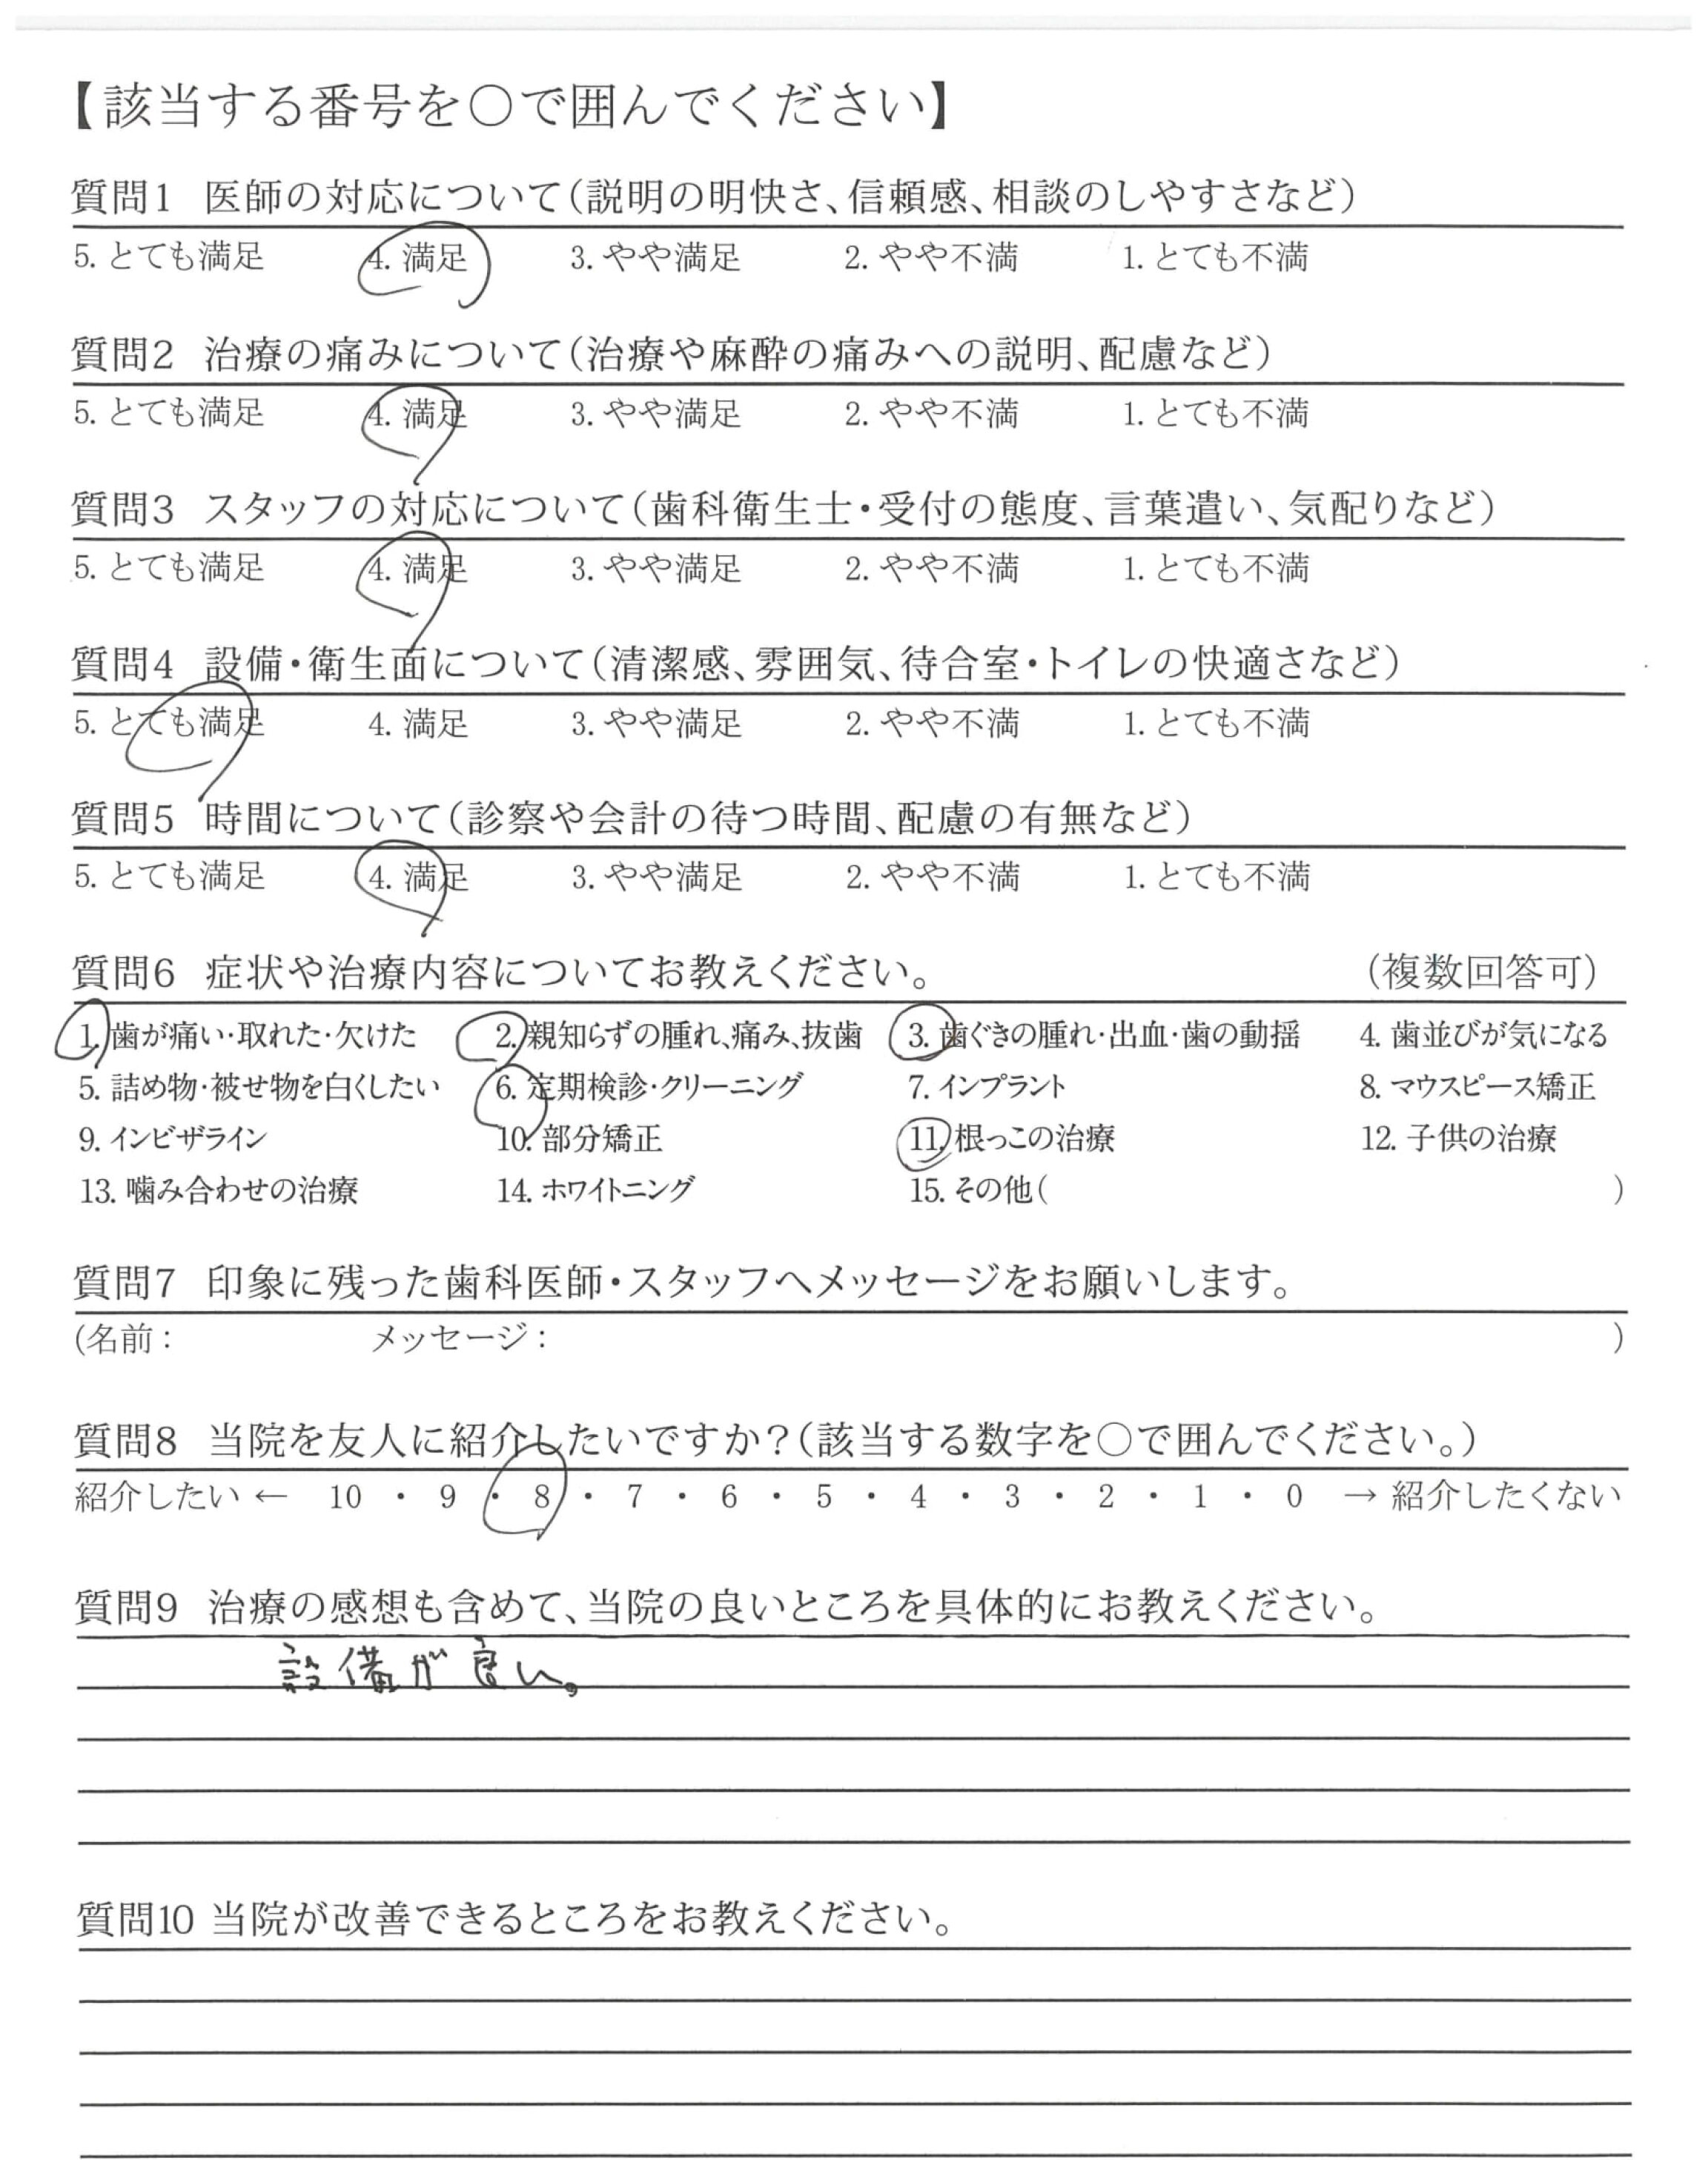 【該当する番号を○で囲んでください】
質問1 医師の対応について(説明の明快さ、信頼感、相談のしやすさなど)
5. とても満足 4. 満足 3. やや満足 2. やや不満 1. とても不満
質問2 治療の痛みについて(治療や麻酔の痛みへの説明、配慮など)
5. とても満足 4. 満足 3. やや満足 2. やや不満 1. とても不満
質問3 スタッフの対応について(歯科衛生士・受付の態度、言葉遣い、気配りなど)
5. とても満足 4. 満足 3. やや満足 2. やや不満 1. とても不満
質問4 設備・衛生面について(清潔感、雰囲気、待合室・トイレの快適さなど)
5. とても満足 4. 満足 3. やや満足 2. やや不満 1. とても不満
質問5 時間について(診察や会計の待つ時間、配慮の有無など)
5. とても満足 4. 満足 3. やや満足 2. やや不満 1. とても不満
質問6 症状や治療内容についてお教えください。 (複数回答可)
1. 歯が痛い・取れた・欠けた 2. 親知らずの腫れ、痛み、抜歯 3. 歯ぐきの腫れ・出血・歯の動揺 4. 歯並びが気になる
5. 詰め物・被せ物を白くしたい 6. 定期検診・クリーニング 7. インプラント 8. マウスピース矯正
9. インビザライン 10. 部分矯正 11. 根っこの治療 12. 子供の治療
13. 噛み合わせの治療 14. ホワイトニング 15. その他( )
質問7 印象に残った歯科医師・スタッフへメッセージをお願いします。
(名前: メッセージ: )
質問8 当院を友人に紹介したいですか?(該当する数字を○で囲んでください。)
紹介したい ← 10 ・ 9 ・ 8 ・ 7 ・ 6 ・ 5 ・ 4 ・ 3 ・ 2 ・ 1 ・ 0 → 紹介したくない
質問9 治療の感想も含めて、当院の良いところを具体的にお教えください。
設備が良い。
質問10 当院が改善できるところをお教えください。